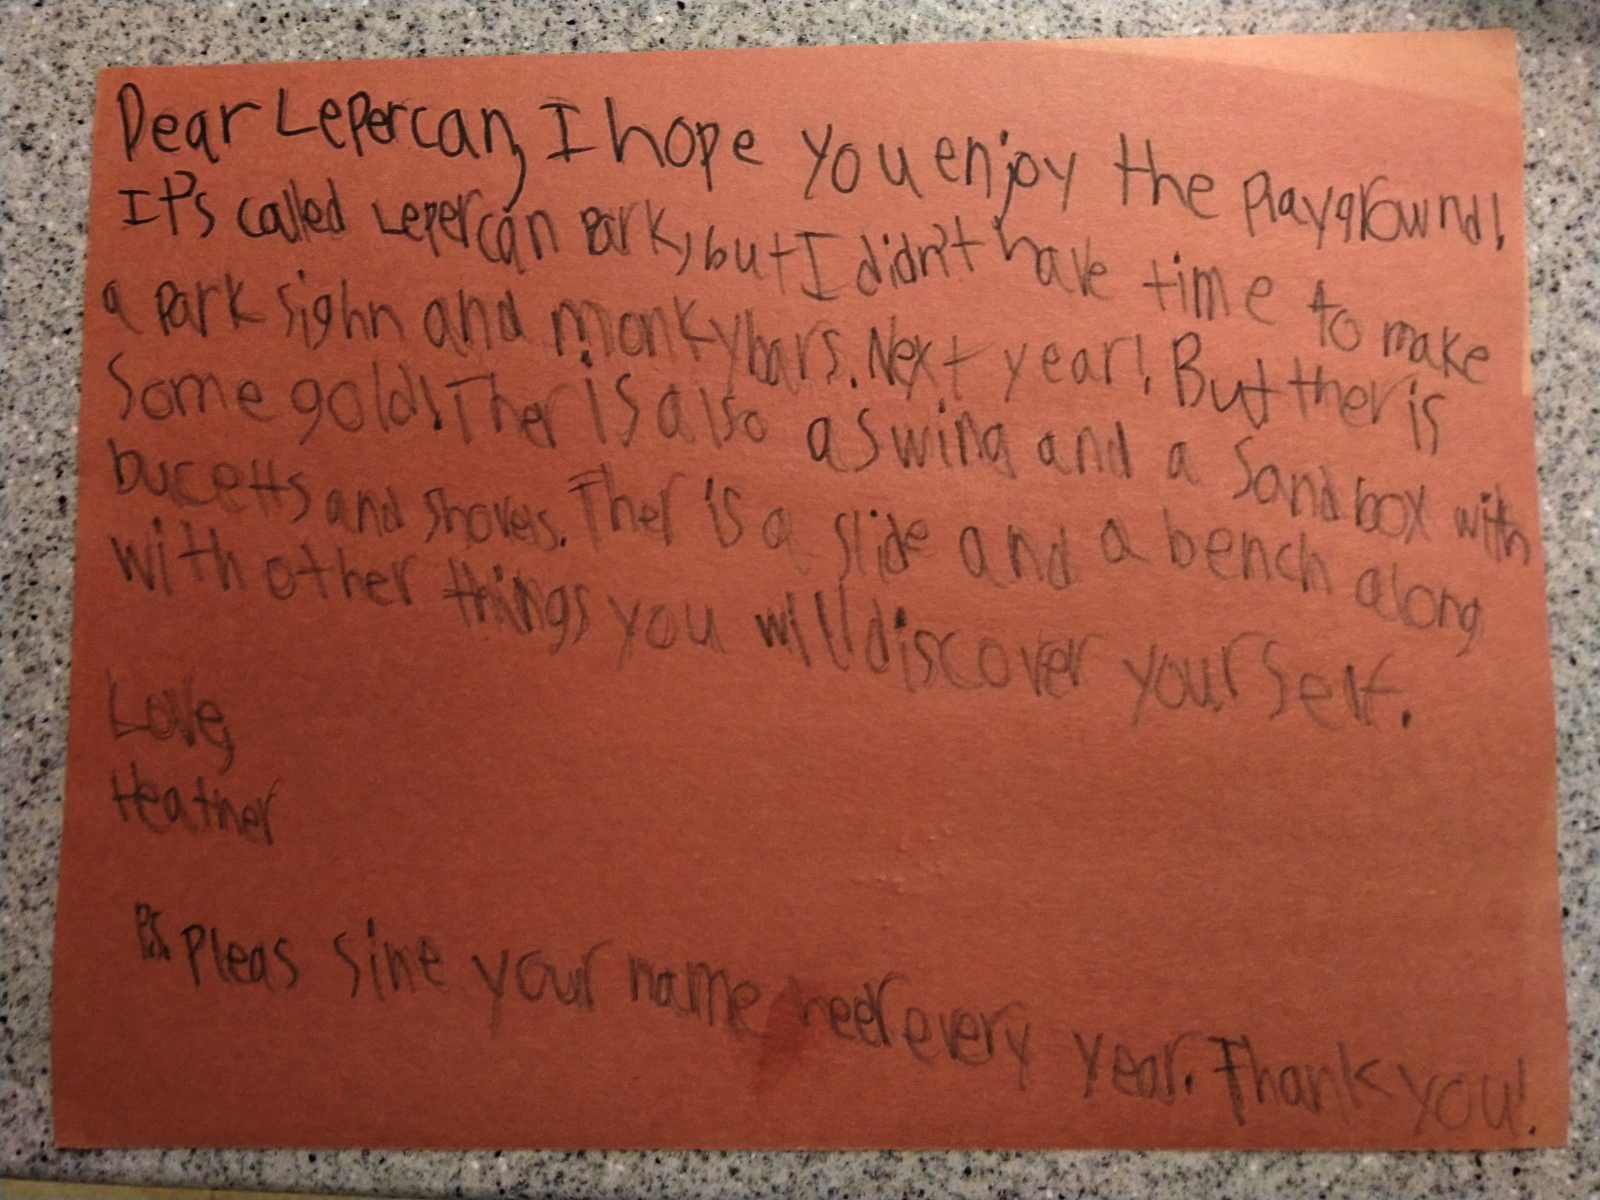 Dear Lepercan, I hope you enjoy the playground!
It's called Lepercan Park, but I didn't have time to make
a park sighn and monkybars. Next year! But ther is
some gold! Ther is also a swing and a sandbox with
bucetts and shovels. Ther is a slide and a bench along
with other things you will discover your self.
Love,
Heather
P.S. Pleas sine your name heer every year. Thank you!